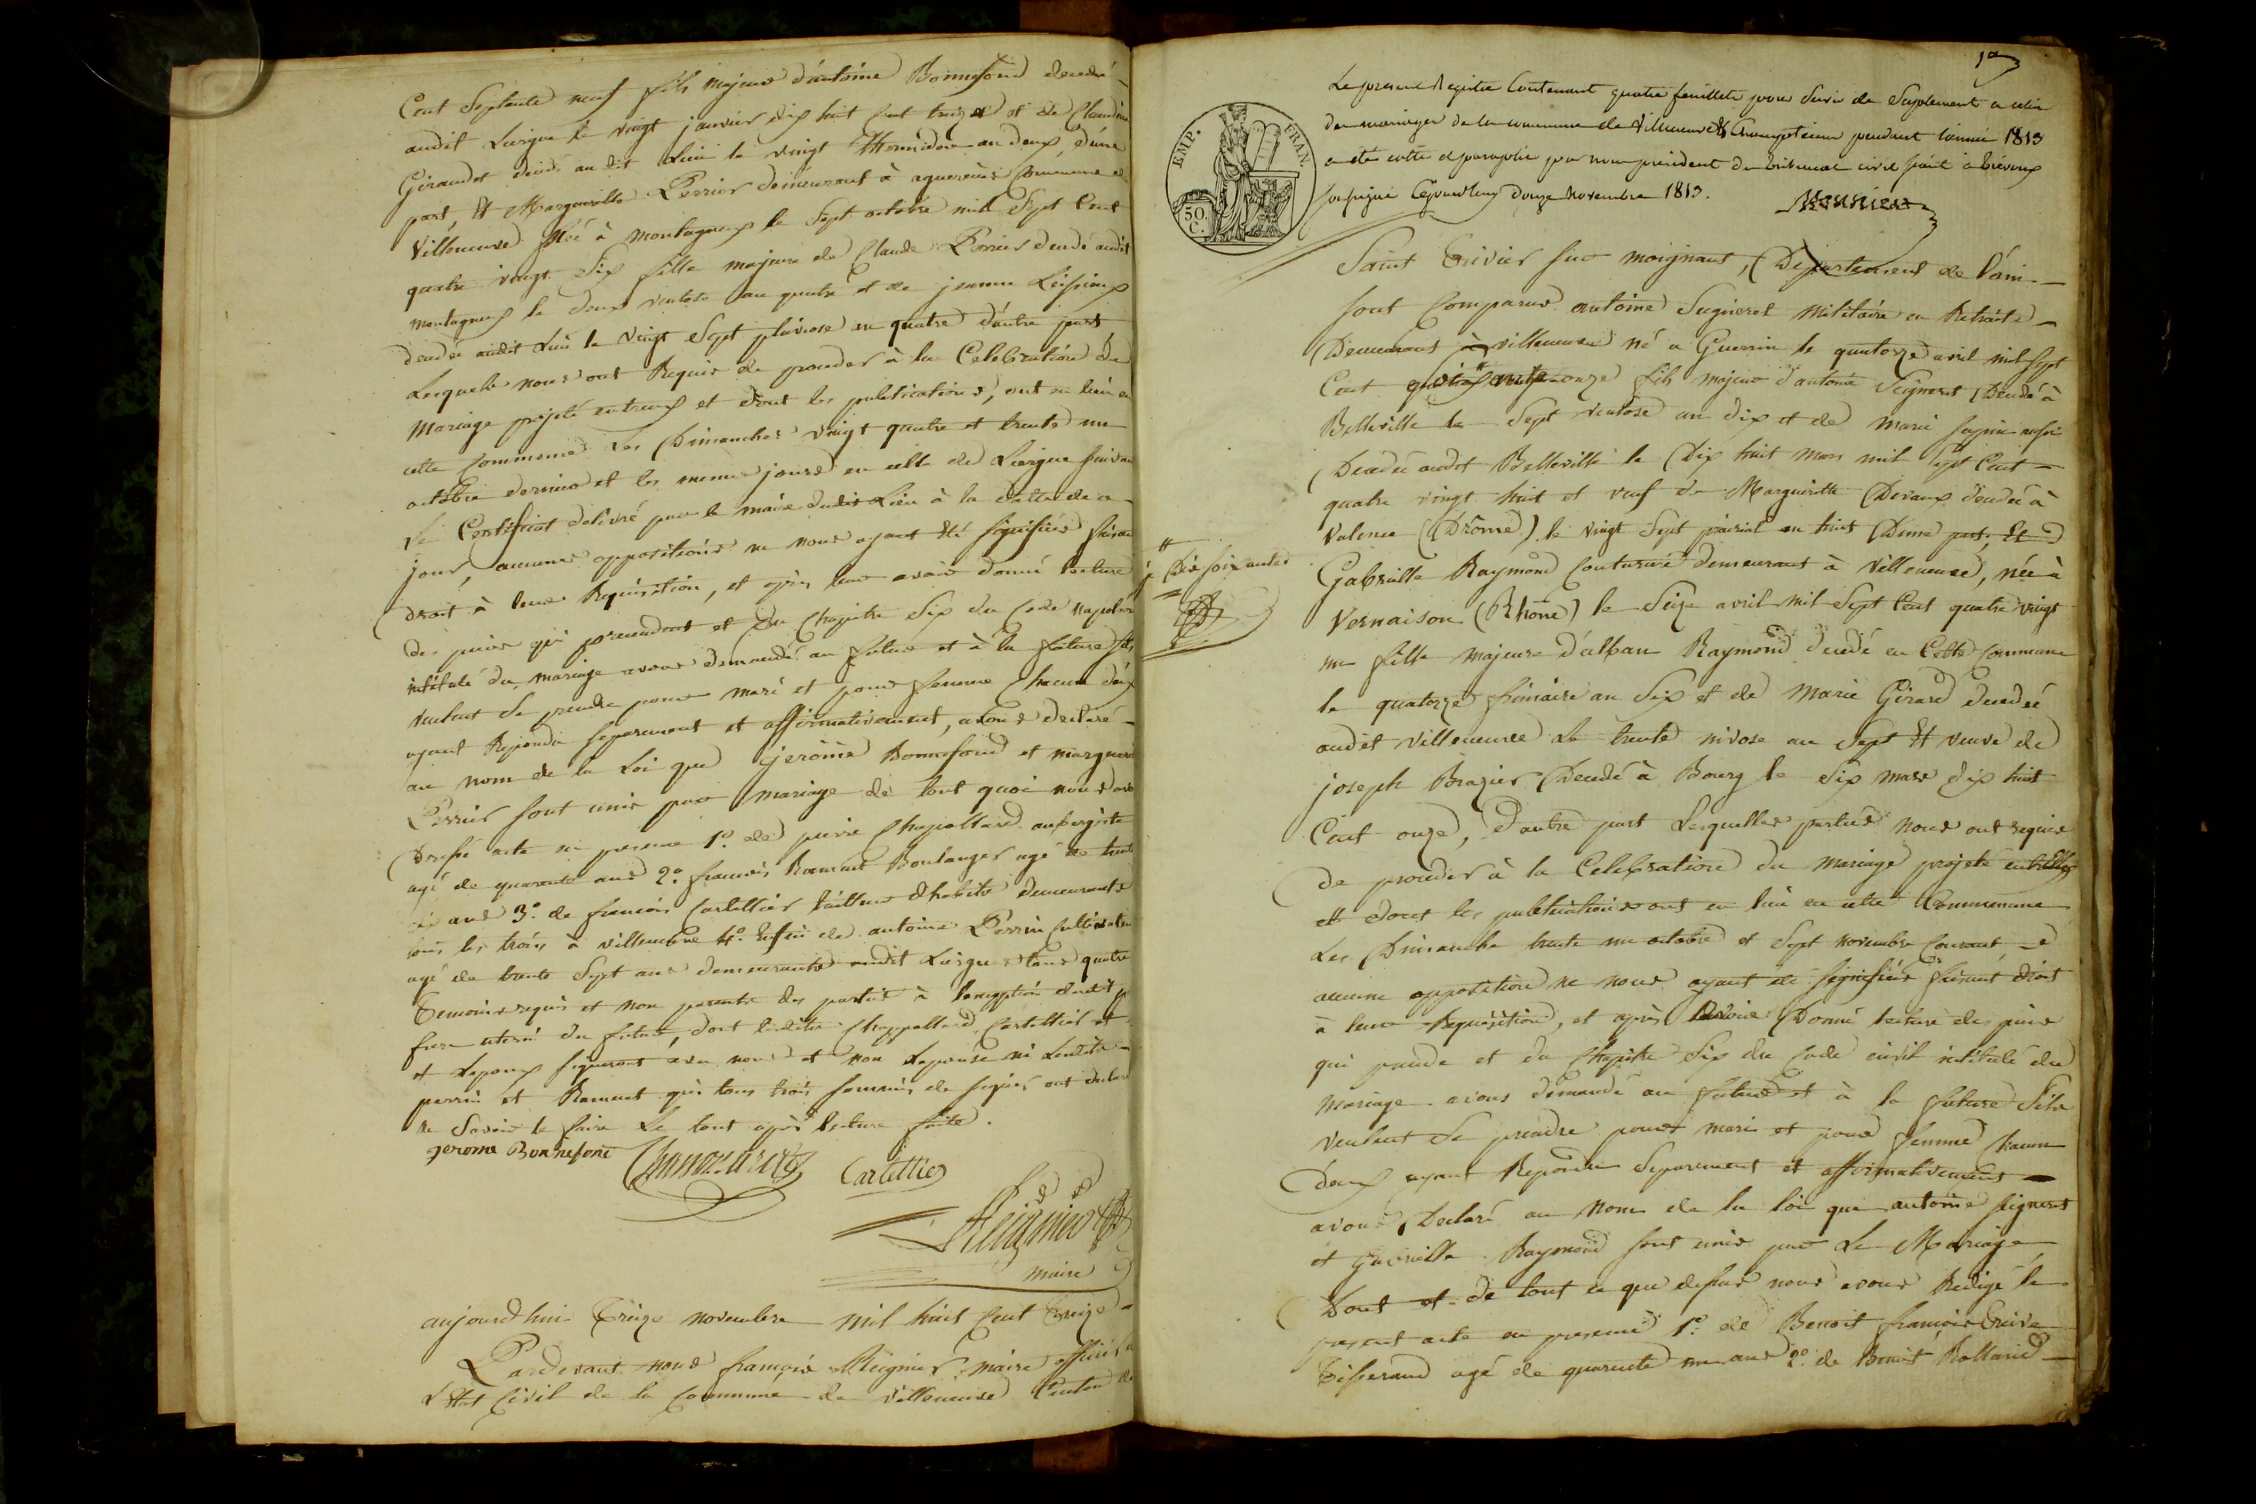 Cent Septante neuf fils majeur d'antoine Bonnefond decedé
audit Liergue le vingt janvier dix huit cent treize et de Claudine
Giraudet decedé audit Lieu le vingt Thermidor an deux, d'une
part, Et Marguerite Perrier demeurant à agnereins Commune de
Villeneuve Née à montagneux le Sept octobre mil Sept Cent
quatre vingt Six fille majeure de Claude Perrier decedé audit
montagneux le deux ventose an quatre et de jeanne
decedée audit Lieu le vingt Sept pluviose an quatre d'autre part,
Lesquels nous ont Requis de proceder à la Celebration du
Mariage projeté entreux et dont les publications, ont eu lieu en
cette Commune Les Dimanches vingt quatre et trente un
octobre dernier et les memes jours en celle de Liergue suivant
le Certificat delivré par le maire dudit Lieu à la datte de ce
jour, aucune oppositions ne nous ayant été signifiées faisant
droit à leur Requisition, et après leur avoir donné lecture
des pieces qui precendent et du Chapitre Six du Code napoleon
intitulé du mariage avons demandé au futur et à la future s'ils
veulent se prendre pour mari et pour femme Chacun d'eux
ayant Repondu separement et affirmativement, avons declaré
au nom de la Loi que jerome Bonnefond et marguerite
Perrier sont unis par mariage de tout quoi nous avons
Dressé acte en presence 1.º de pierre Chapollard aubergiste
agé de quarante ans 2.º francois Ramuet Boulanger agé de trente
six ans 3.º de francois Cartellier tailleur d'habits demeurants
tous les trois à villeneuve 4.º Enfin de antoine Perrin Cultivateur
agé de trente Sept ans demeurants audit Liergue tous quatre
Temoins requis et non parents des parties à l'exception dudit
frere uterin du futur, dont lesdits Chapollard, Cartellier et
et Lepoux signeront avec nous et non Lepouse ni lesdits
perrin et Ramuet qui tous trois sommés de signer ont declaré
ne Savoir le faire Le tout après lecture faite.
jerome Bonnefond Cartellier
Reignier
maire
aujourdhui Treize novembre mil huit Cent treize
Pardevant nous francois Reignier, maire officier de
L'Etat Civil de la Commune de villeneuve Canton de
1er
Le present Registre Contenant quatre feuillets pour Servir de Suplement a celui
des mariages de la commune de Villeneuve & Champteins pendant l'année 1813
a eté cotté et paraphé par nous president du tribunal civil seant à Trévoux
soussigné Cejourdhuy Douze Novembre 1813.
Meunier
EMP. FRAN.
50. C.
Saint Trivier sur moignans, Departement de l'ain
sont Comparus antoine Seigneret Militaire en Retraite
Demeurant à villeneuve né a Guerrin le quatorze avril mil Sept
Cent onze fils majeur d'antoine Seigneret Decedé à
Belleville le Sept ventose an dix et de Marie aussi
Decedée audit Belleville le Dix huit Mars mil Sept Cent
quatre vingt huit et veuf de Marguerite Devaux decedée à
Valence (Drôme) le vingt Sept prairial an huit D'une part, Et
Gabrielle Raymond Couturiere demeurant à villeneuve, née à
Vernaison (Rhône) le Seize avril mil Sept Cent quatre vingt
un fille majeure d'alban Raymond decedé en Cette Commune
le quatorze frimaire an Six et de Marie Girard decedée
audit Villeneuve le trente nivose an Sept Et veuve de
joseph Brazier Decedé à Bourg le Six mars dix huit
Cent onze, D'autre part Lesquelles parties nous ont requis
De proceder à la Celebration du Mariage projeté entr'elles
et dont les publications ont eu lieu en cette Commune
Les Dimanche trente un octobre et Sept novembre Courant,
aucune opposition ne nous ayant été signifiée faisant droit
à leur Requisition, et après Avoir Donné lecture des pieces
qui precede et du Chapitre Six du Code civil intitulé du
Mariage avons demandé au futur et à la future S'ils
veulent Se prendre pour mari et pour femme Chacun
d'eux ayant Repondu Separement et affirmativement
avons Declaré au Nom de la loi que antoine Seigneret
et Gabrielle Raymond sont unis par Le Mariage
Dont et de tout ce que dessus nous avons Redigé le
present acte en presence 1.º de Benoit francois
Tisserand agé de quarante un ans 2.º de Benoit Rolland
soixante